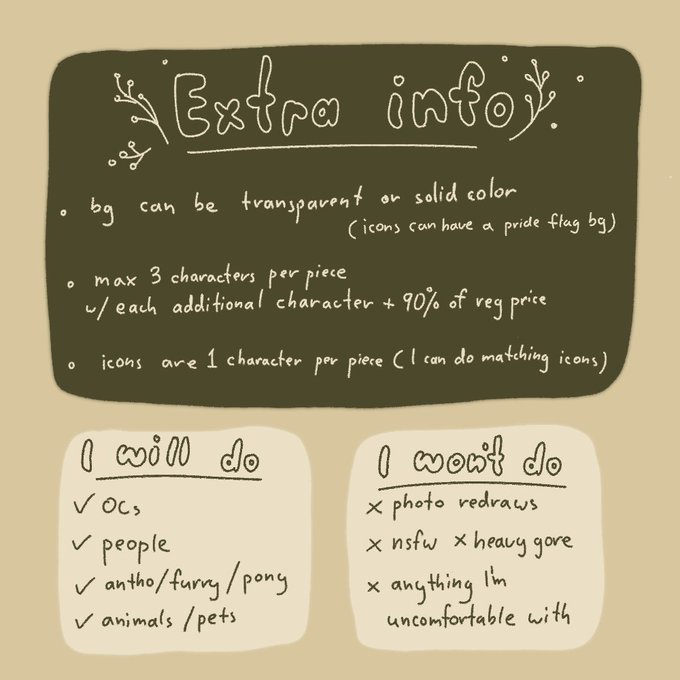 Extra info
• bg can be transparent or solid color
(icons can have a pride flag bg)
• max 3 characters per piece
w/ each additional character + 90% of reg price
• icons are 1 character per piece (I can do matching icons)
I will do
✓ OCs
✓ people
✓ antho/furry/pony
✓ animals/pets
I won't do
× photo redraws
× nsfw × heavy gore
× anything I'm
uncomfortable with